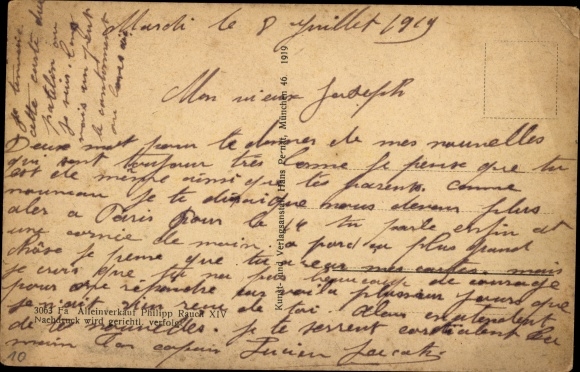 Mardi le 8 Juillet 1919
Mon vieux Joseph
Deux mot pour te donner de mes nouvelles
qui sont toujour très bonne je pense que tu
est de même ainsi que tes parents. comme
nouveau je te dirai que nous devons plus
aler a Paris pour le 14 tu parle enfin et
une de main, a par ça plus grand
chose je pense que tu reçu mes cartes. mais
je crois que tu na pas beaucoup de courage
pour me répondre car voila plusieur jours que
je n'ait rien reçu de toi. Dans
de nouvelles. je te serrent cordialement la
main Ton copain Lucien
je termine
cette carte du
patelin ou
je suis. Cest
mais un peut
le
3063 Fa Alleinverkauf Philipp Rauch XIV
Nachdruck wird gerichtl. verfolgt
Kunst- und Verlagsanstalt Hans Pernat, München 46 1919
10